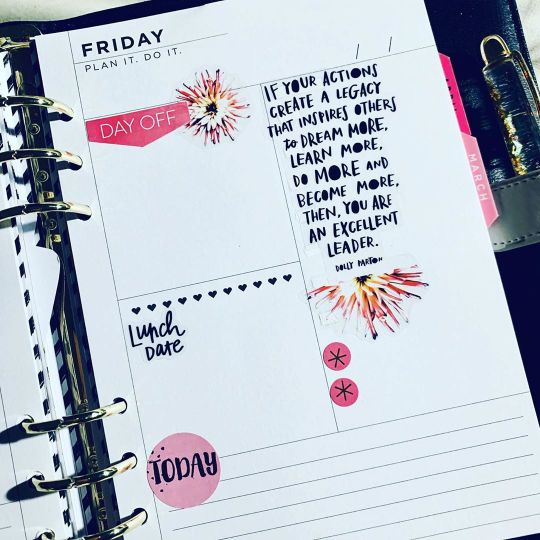 FRIDAY
PLAN IT. DO IT.
/ /
DAY OFF
IF YOUR ACTIONS
CREATE A LEGACY
THAT INSPIRES OTHERS
to DREAM MORE,
LEARN MORE,
DO MORE AND
BECOME MORE,
THEN, YOU ARE
AN EXCELLENT
LEADER.
DOLLY PARTON
MARCH
Lunch
DATE
TODAY